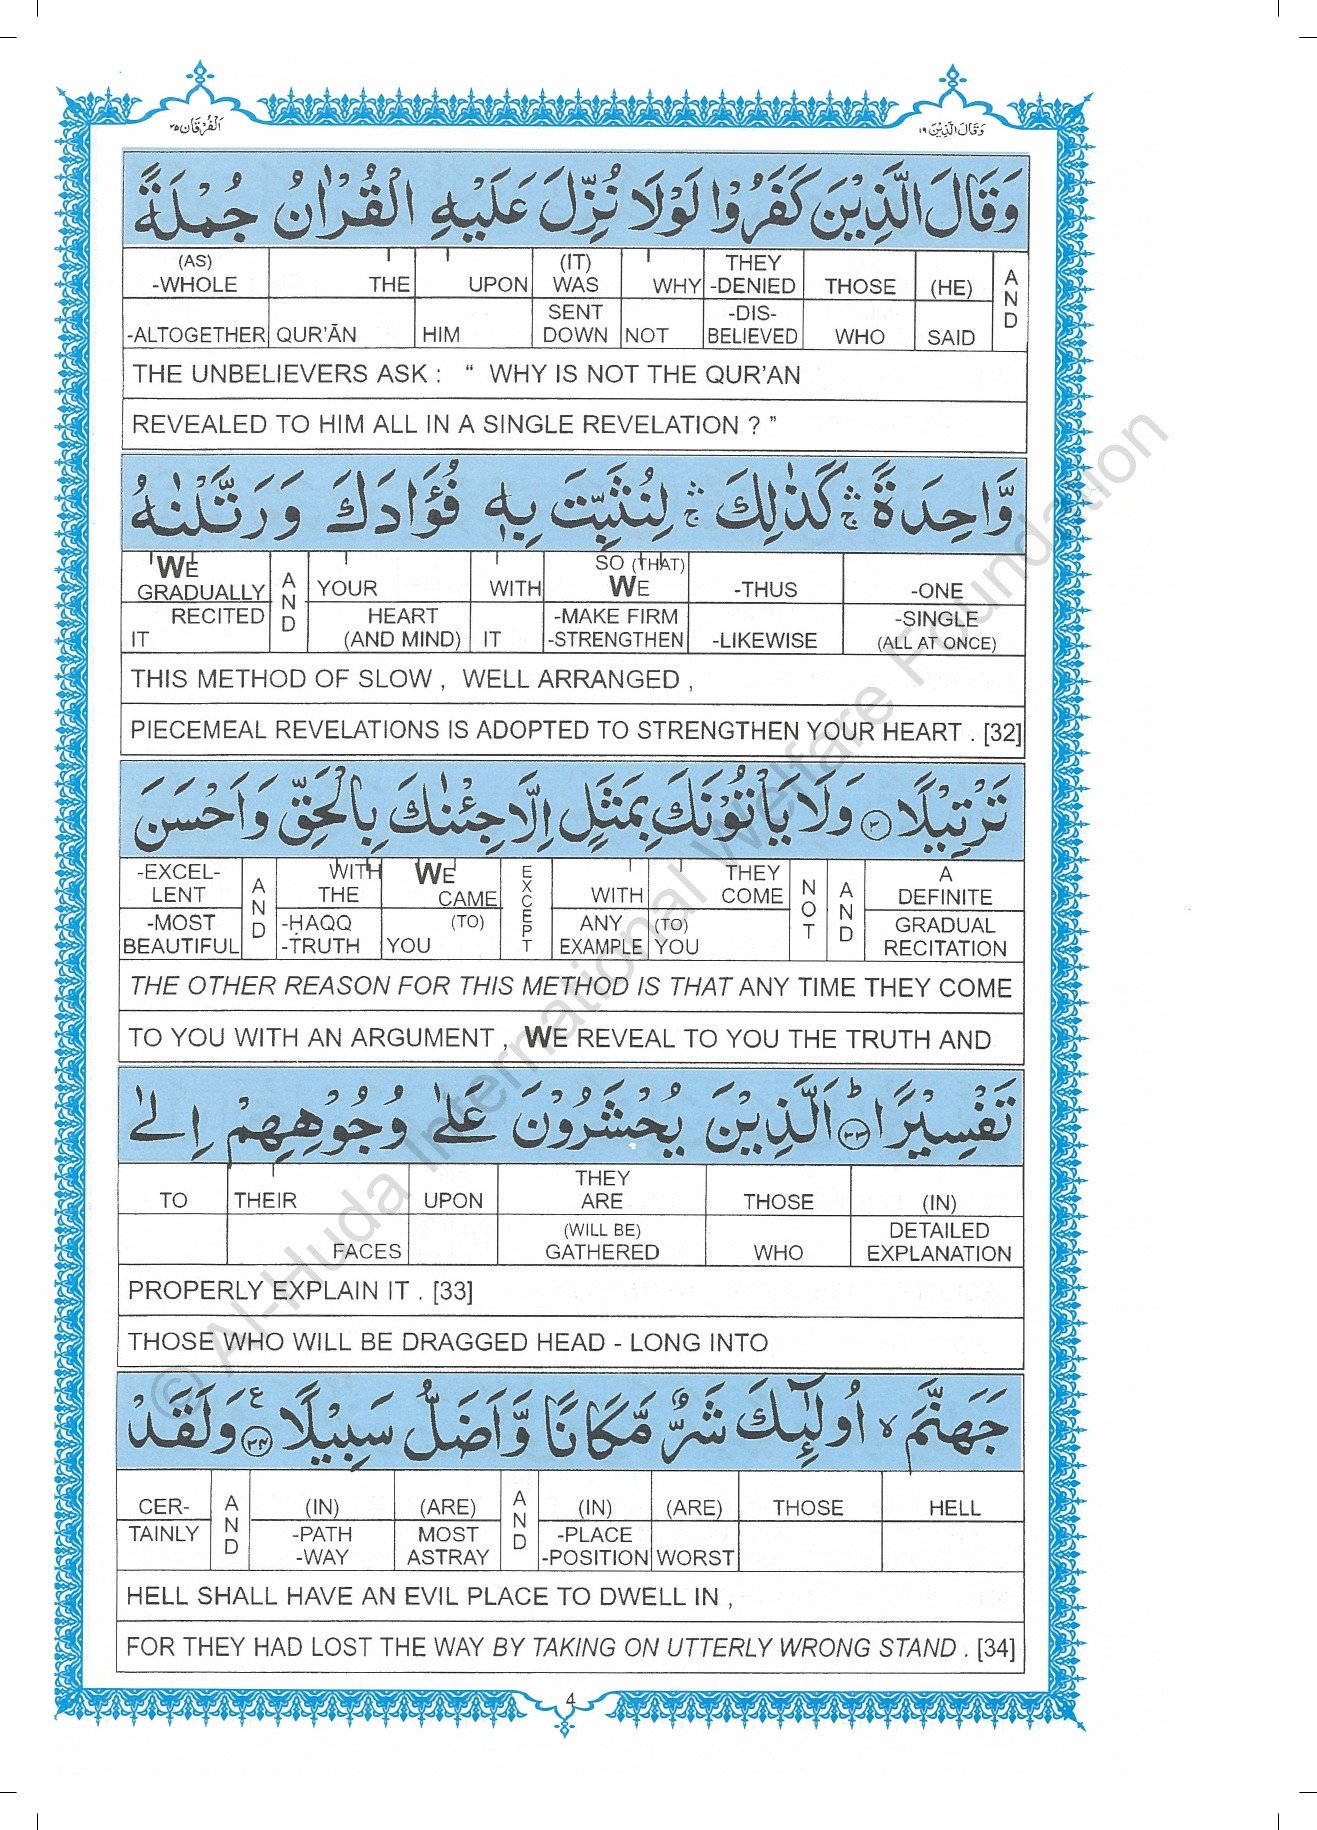 وَقَالَ الَّذِيْنَ ١٩
اَلْفُرْقَان ٢٥
وَقَالَ الَّذِيْنَ كَفَرُوْا لَوْلَا نُزِّلَ عَلَيْهِ الْقُرْاٰنُ جُمْلَةً
(AS) -WHOLE THE UPON (IT) WAS WHY THEY -DENIED THOSE (HE) AND
-ALTOGETHER QUR’ĀN HIM SENT DOWN NOT -DIS- BELIEVED WHO SAID
THE UNBELIEVERS ASK : “ WHY IS NOT THE QUR’AN
REVEALED TO HIM ALL IN A SINGLE REVELATION ? ”
وَّاحِدَةً ۛۚ كَذٰلِكَ ۛۚ لِنُثَبِّتَ بِهٖ فُؤَادَكَ وَرَتَّلْنٰهُ
WE GRADUALLY AND YOUR WITH SO (THAT) WE -THUS -ONE
RECITED IT HEART (AND MIND) IT -MAKE FIRM -STRENGTHEN -LIKEWISE -SINGLE (ALL AT ONCE)
THIS METHOD OF SLOW , WELL ARRANGED ,
PIECEMEAL REVELATIONS IS ADOPTED TO STRENGTHEN YOUR HEART . [32]
تَرْتِيْلًا ۝٣٢ وَلَا يَأْتُوْنَكَ بِمَثَلٍ اِلَّا جِئْنٰكَ بِالْحَقِّ وَاَحْسَنَ
-EXCEL- LENT AND WITH THE WE CAME EXCEPT WITH THEY COME NOT AND A DEFINITE
-MOST BEAUTIFUL -ḤAQQ -TRUTH (TO) YOU ANY EXAMPLE (TO) YOU GRADUAL RECITATION
THE OTHER REASON FOR THIS METHOD IS THAT ANY TIME THEY COME
TO YOU WITH AN ARGUMENT , WE REVEAL TO YOU THE TRUTH AND
تَفْسِيْرًا ۝٣٣ؕ اَلَّذِيْنَ يُحْشَرُوْنَ عَلٰى وُجُوْهِهِمْ اِلٰى
TO THEIR UPON THEY ARE THOSE (IN)
FACES (WILL BE) GATHERED WHO DETAILED EXPLANATION
PROPERLY EXPLAIN IT . [33]
THOSE WHO WILL BE DRAGGED HEAD - LONG INTO
جَهَنَّمَ ۙ اُولٰٓئِكَ شَرٌّ مَّكَانًا وَّاَضَلُّ سَبِيْلًا ۝٣٤ ع وَلَقَدْ
CER- AND (IN) (ARE) AND (IN) (ARE) THOSE HELL
TAINLY -PATH -WAY MOST ASTRAY -PLACE -POSITION WORST
HELL SHALL HAVE AN EVIL PLACE TO DWELL IN ,
FOR THEY HAD LOST THE WAY BY TAKING ON UTTERLY WRONG STAND . [34]
4
© Al-Huda International Welfare Foundation